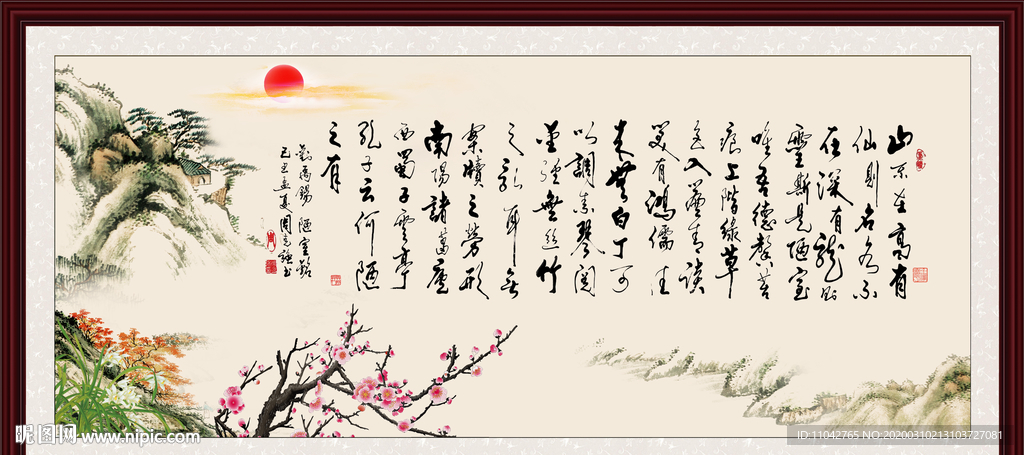 山不在高有
仙則名水不
在深有龍則
靈斯是陋室
唯吾德馨苔
痕上階綠草
色入簾青談
笑有鴻儒往
来無白丁可
以調素琴閱
金經無丝竹
之亂耳無
案牘之勞形
南陽諸葛廬
西蜀子雲亭
孔子云何陋
之有
劉禹錫 陋室銘
己丑孟夏周書
昵图网 www.nipic.com
ID:11042765 NO:20200310213103727081